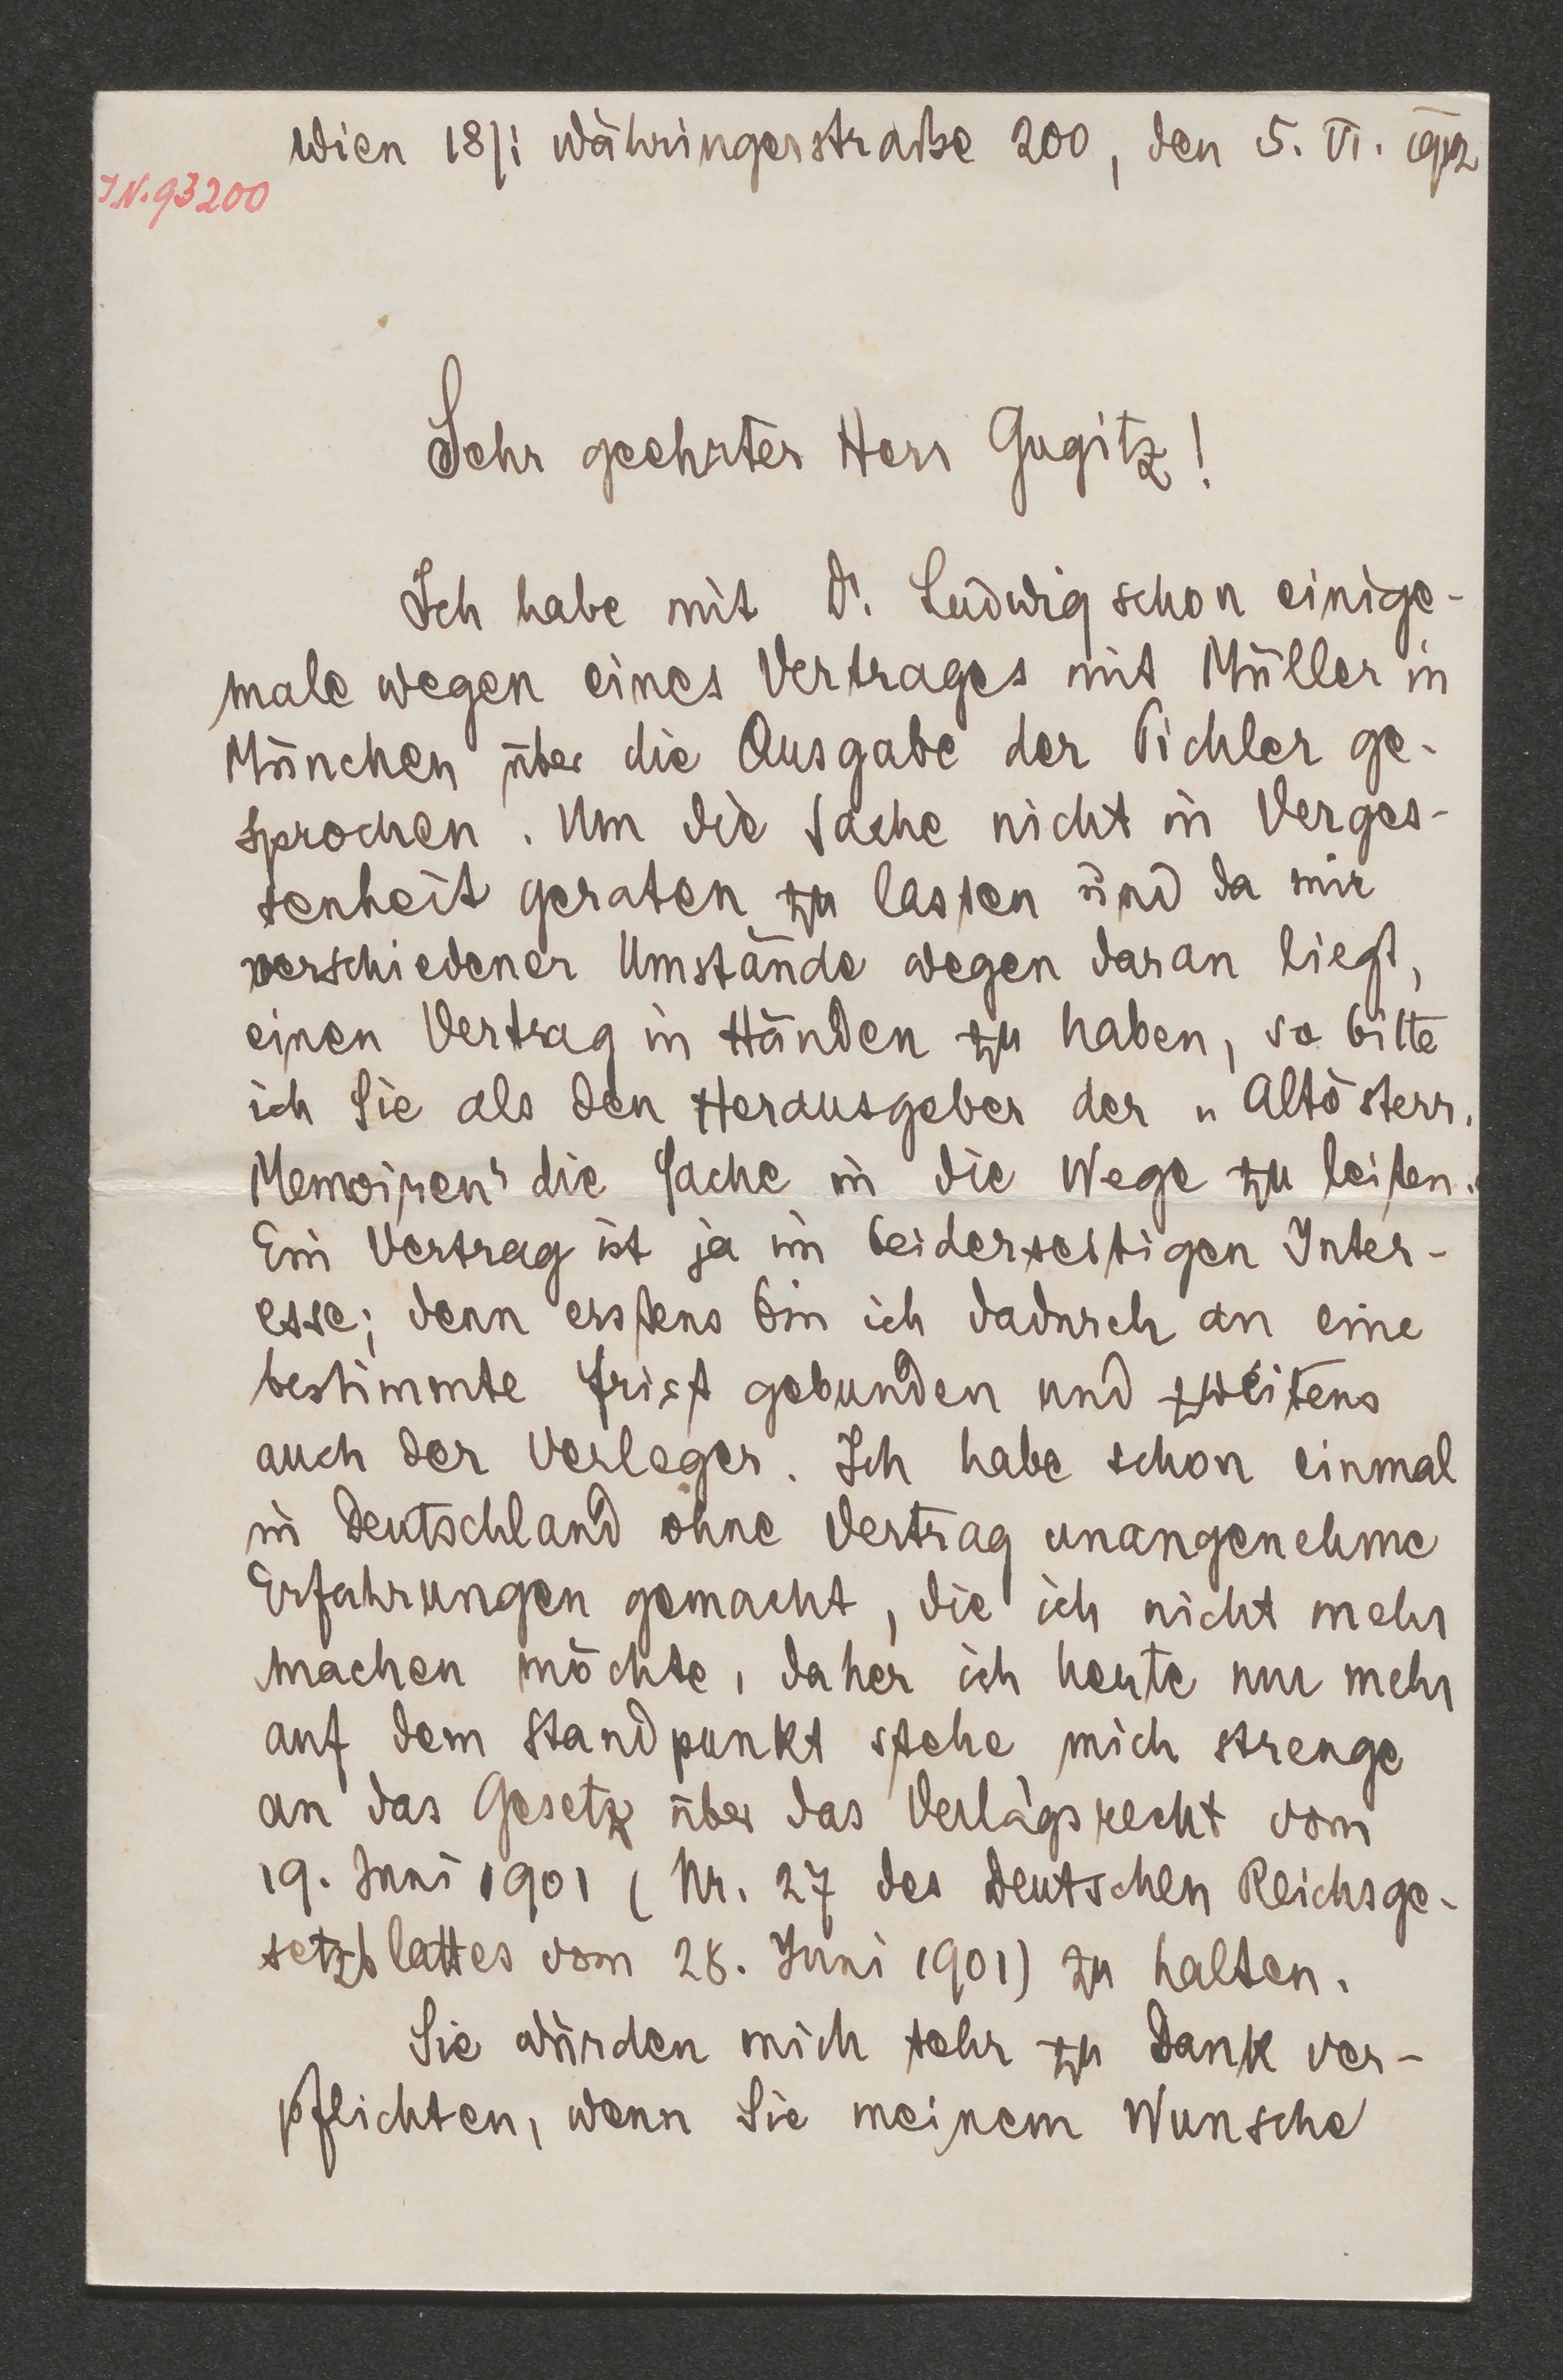 Wien 18/1 Währingerstraße 200, den 5. VI. 1912
I.N. 93200
Sehr geehrter Herr Gugitz!
Ich habe mit Dr. Ludwig schon einige-
male wegen eines Vertrages mit Müller in
München über die Ausgabe der Pichler ge-
sprochen. Um die Sache nicht in Verges-
senheit geraten zu lassen und da mir
verschiedener Umstände wegen daran liegt,
einen Vertrag in Händen zu haben, so bitte
ich Sie als den Herausgeber der "Altösterr.
Memoiren" die Sache in die Wege zu leiten.
Ein Vertrag ist ja im beiderseitigen Inter-
esse; denn erstens bin ich dadurch an eine
bestimmte Frist gebunden und zweitens
auch der Verleger. Ich habe schon einmal
in Deutschland ohne Vertrag unangenehme
Erfahrungen gemacht, die ich nicht mehr
machen möchte, daher ich heute nur mehr
auf dem Standpunkt stehe mich strenge
an das Gesetz über das Verlagsrecht vom
19. Juni 1901 (Nr. 27 des Deutschen Reichsge-
setzblattes vom 28. Juni 1901) zu halten.
Sie würden mich sehr zu Dank ver-
pflichten, wenn Sie meinem Wunsche